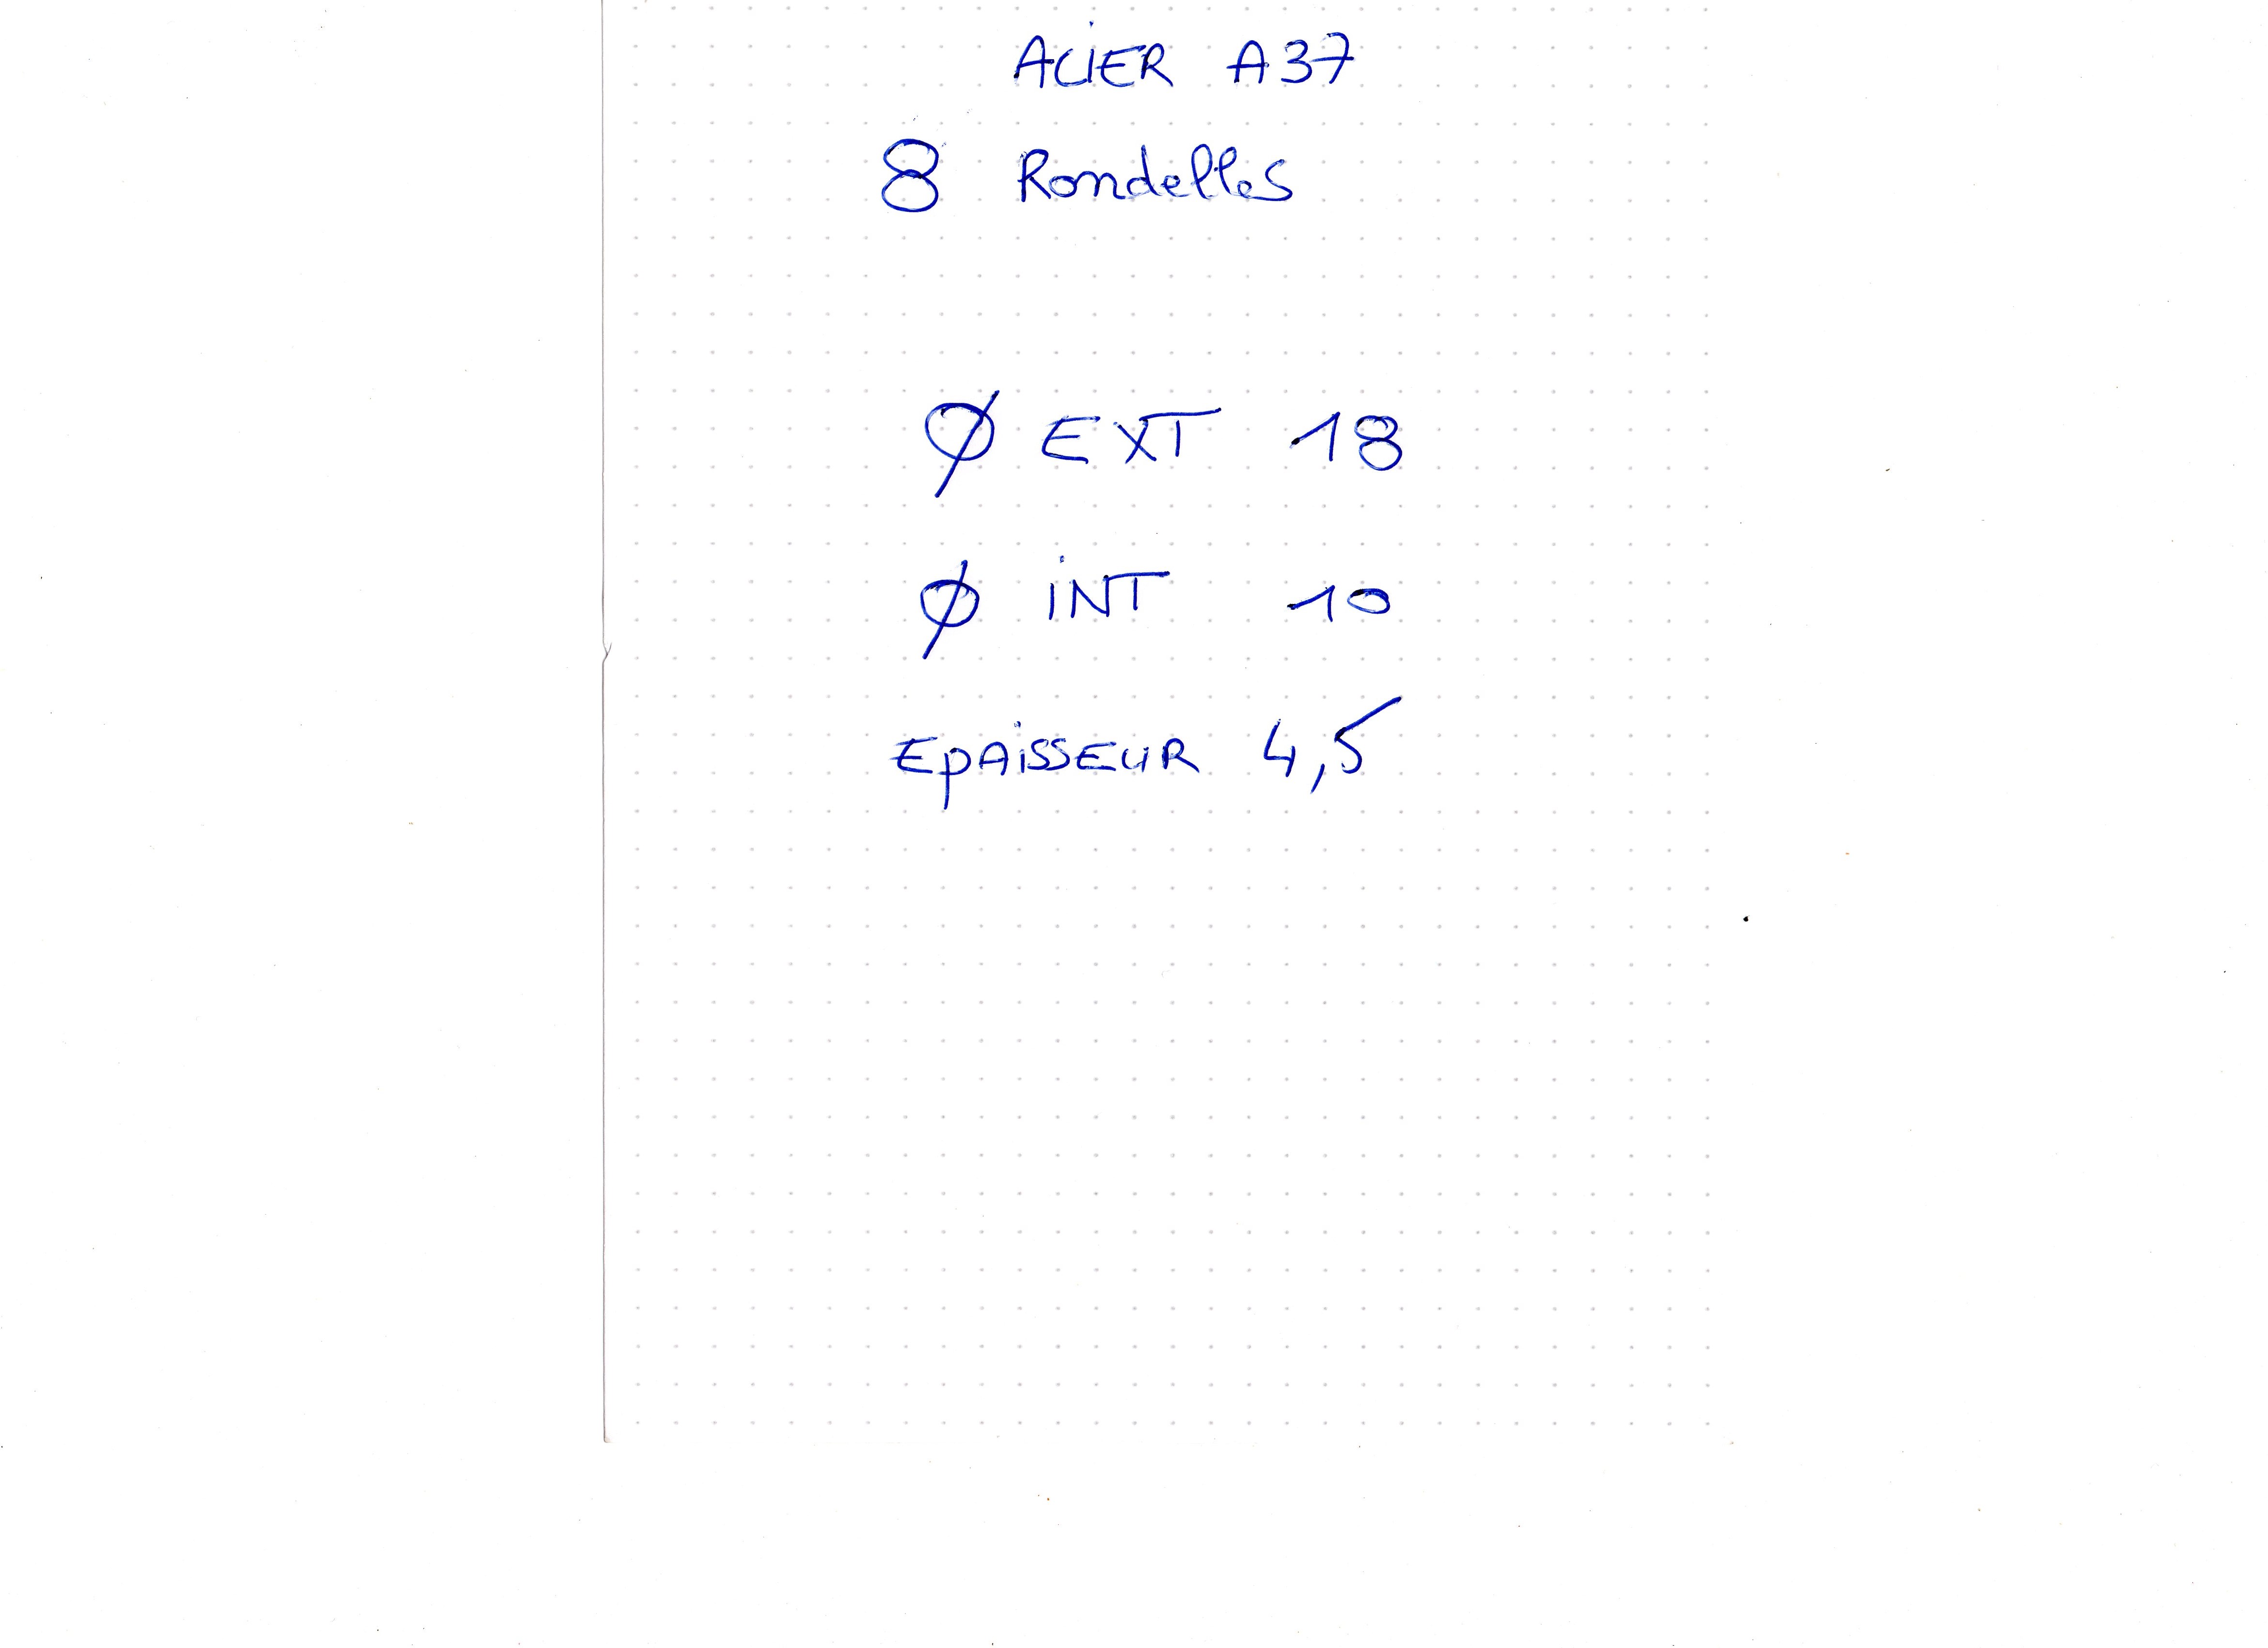 ACIER A37
8 Rondelles
Ø EXT 18
Ø INT 10
EPAISSEUR 4,5